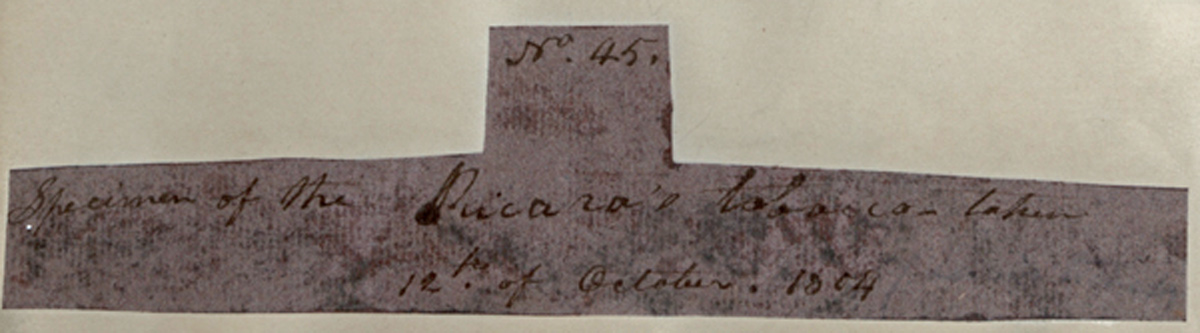 No. 45.
Specimen of the Ricara's tobacco - taken
12th. of October. 1804